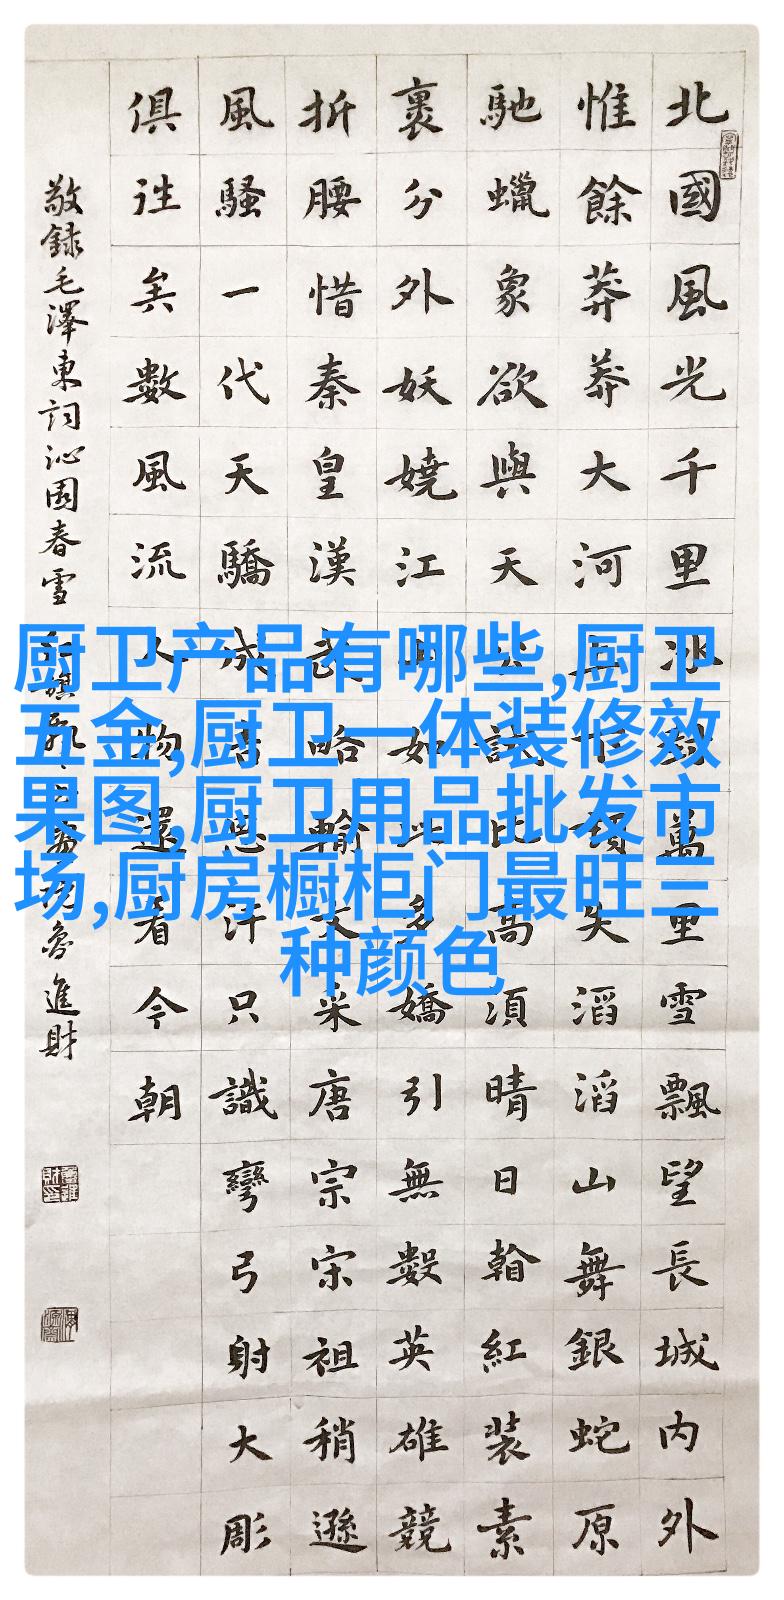 北國風光千里冰封萬里雪飄望長城内外
惟餘莽莽大河上下頓失滔滔山舞銀蛇原
馳蠟象欲與天公試比高須晴日看紅裝素
裹分外妖嬈江山如此多嬌引無數英雄競
折腰惜秦皇漢武略輸文采唐宗宋祖稍遜
風騷一代天驕成吉思汗只識彎弓射大彫
俱往矣數風流人物還看今朝
敬録毛澤東詞沁園春雪 魯進財
厨卫产品有哪些,厨卫
五金,厨卫一体装修效
果图,厨卫用品批发市
场,厨房橱柜门最旺三
种颜色